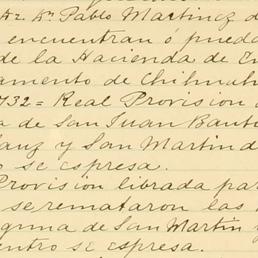 Hz. Dn. Pablo Martinez d
encuentran ó pueda
de la Hacienda de En
amento de Chihuah
1732 = Real Provision
a de San Juan Bauti
lanz y San Martin d
ro se espresa.
Provision librada par
se remataron las
egma de San Martin y
entro se espresa.